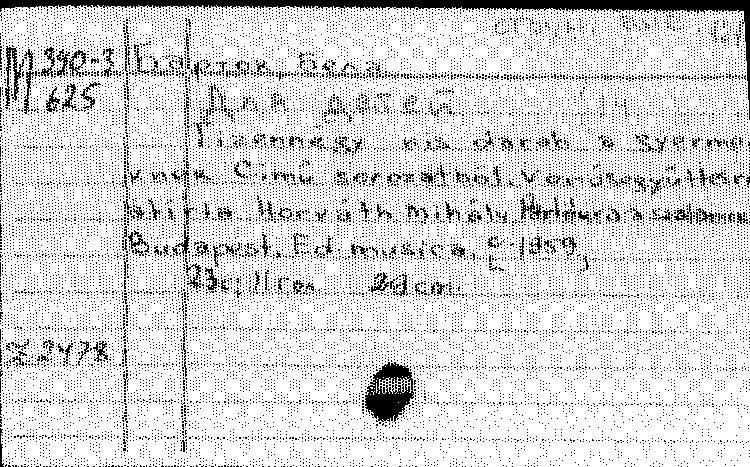 М 390-3 Барток, Бела
625 Для детей
Tizennégy kis darab a gyerme
knek Cimű sorozatból. Vonószegyüttesre
átirta Horváth Mihály.
Budapest, Ed. musica, [c. 1959],
23c., 11 28 cm.
2478